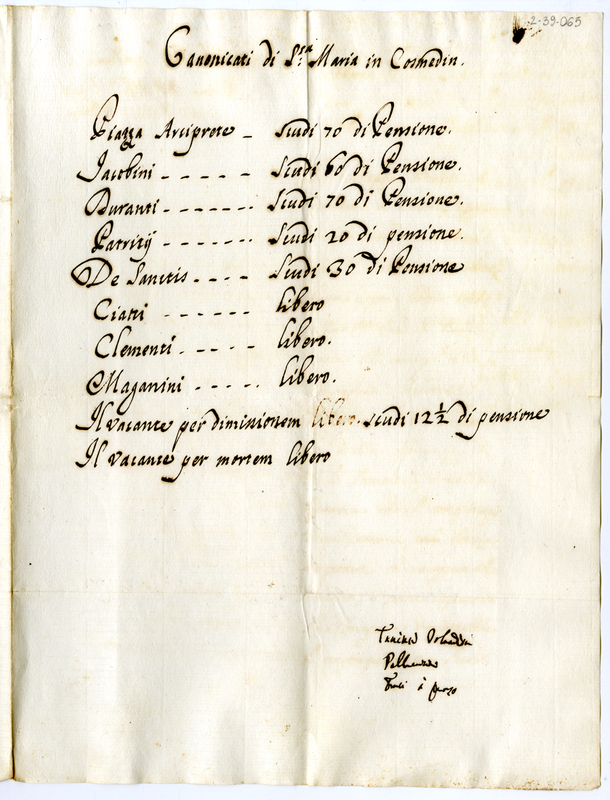 2-39-065
Canonicati di S.ta Maria in Cosmedin.
Piazza Arciprete - scudi 70 di Pensione.
Jacobini - - - - - scudi 60 di Pensione.
Duranti - - - - - - - scudi 70 di Pensione.
Patritij - - - - - - - scudi 20 di pensione.
De Sanctis - - - - scudi 30 di Pensione
Ciatti - - - - - - libero
Clementi - - - - - libero.
Maganini - - - - - libero.
Il vacante per dimissionem libero. scudi 12 1/2 di pensione
Il vacante per mortem libero